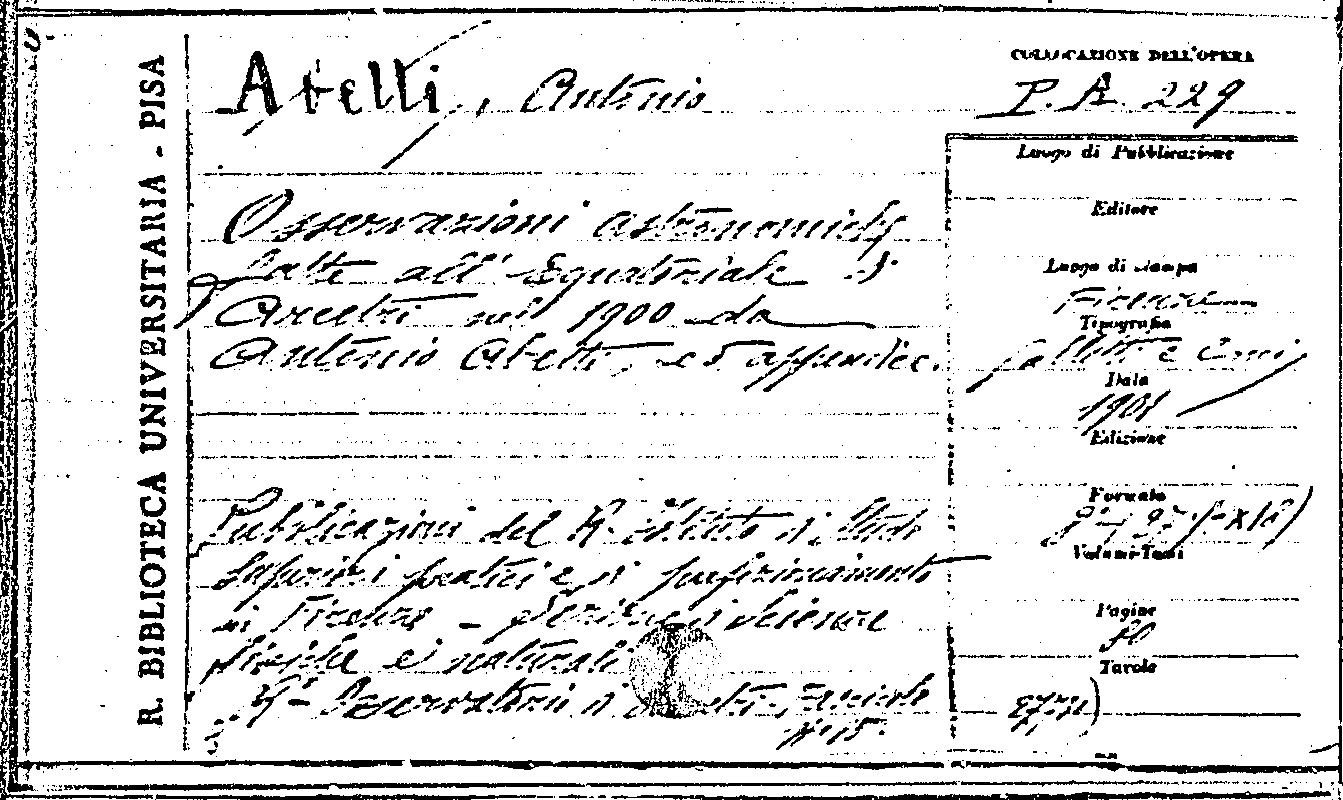 R. BIBLIOTECA UNIVERSITARIA - PISA
Abetti, Antonio
COLLOCAZIONE DELL'OPERA
P. A. 229
Osservazioni astronomiche
fatte all'Equatoriale di
Arcetri nel 1900 da
Antonio Abetti, ed appendice.
Pubblicazioni del R. Istituto di Studi
Superiori pratici e di perfezionamento
in Firenze - Sezione di Scienze
fisiche e naturali
R° Osservatorio di Arcetri, Fascicolo
N° 15.
Luogo di Pubblicazione
Editore
Luogo di stampa
Firenze
Tipografia
Galletti e Cocci
Data
1901
Edizione
Formato
8°
Volumi-Tomi
Pagine
50
Tavole